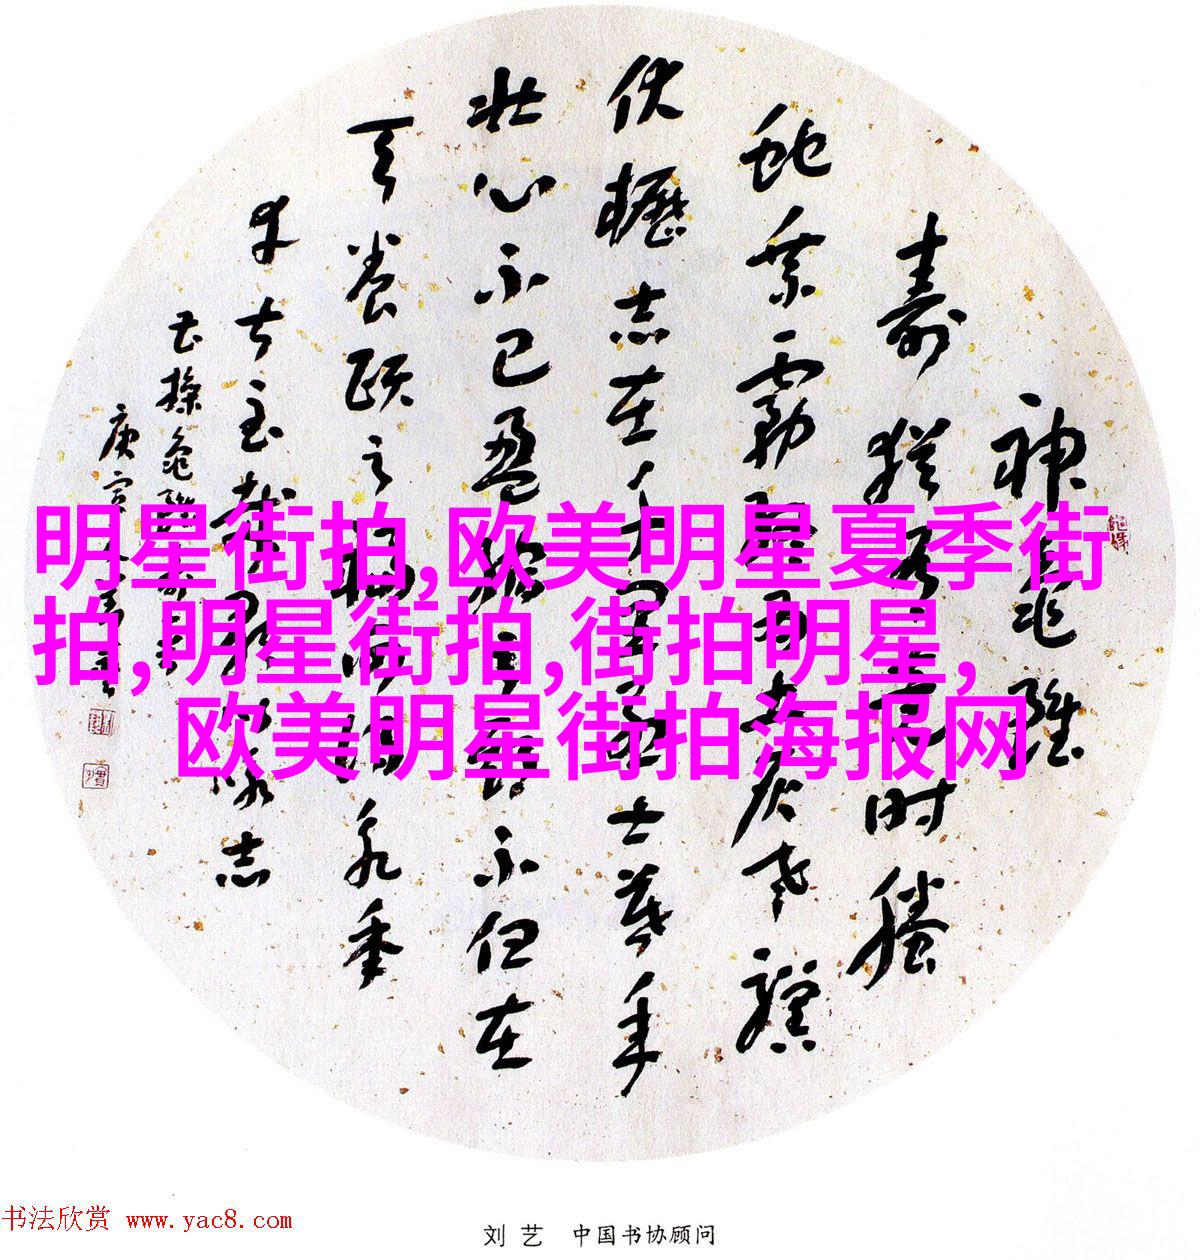 神龜雖
壽猶有竟时螣
蛇乘霧終为土灰老驥
伏櫪志在千里烈士暮年
壮心不已盈縮之期不但在
天養頤之福可得永年
幸甚至哉歌以咏志
曹操龜雖壽
庚寅
明星街拍,欧美明星夏季街
拍,明星街拍,街拍明星,
欧美明星街拍海报网
书法欣赏 www.yac8.com
刘艺 中国书协顾问